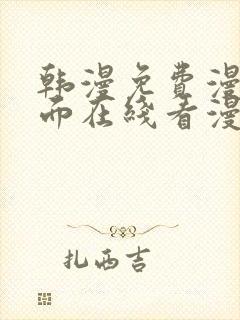 韩漫免费漫
而在线看漫
扎西吉